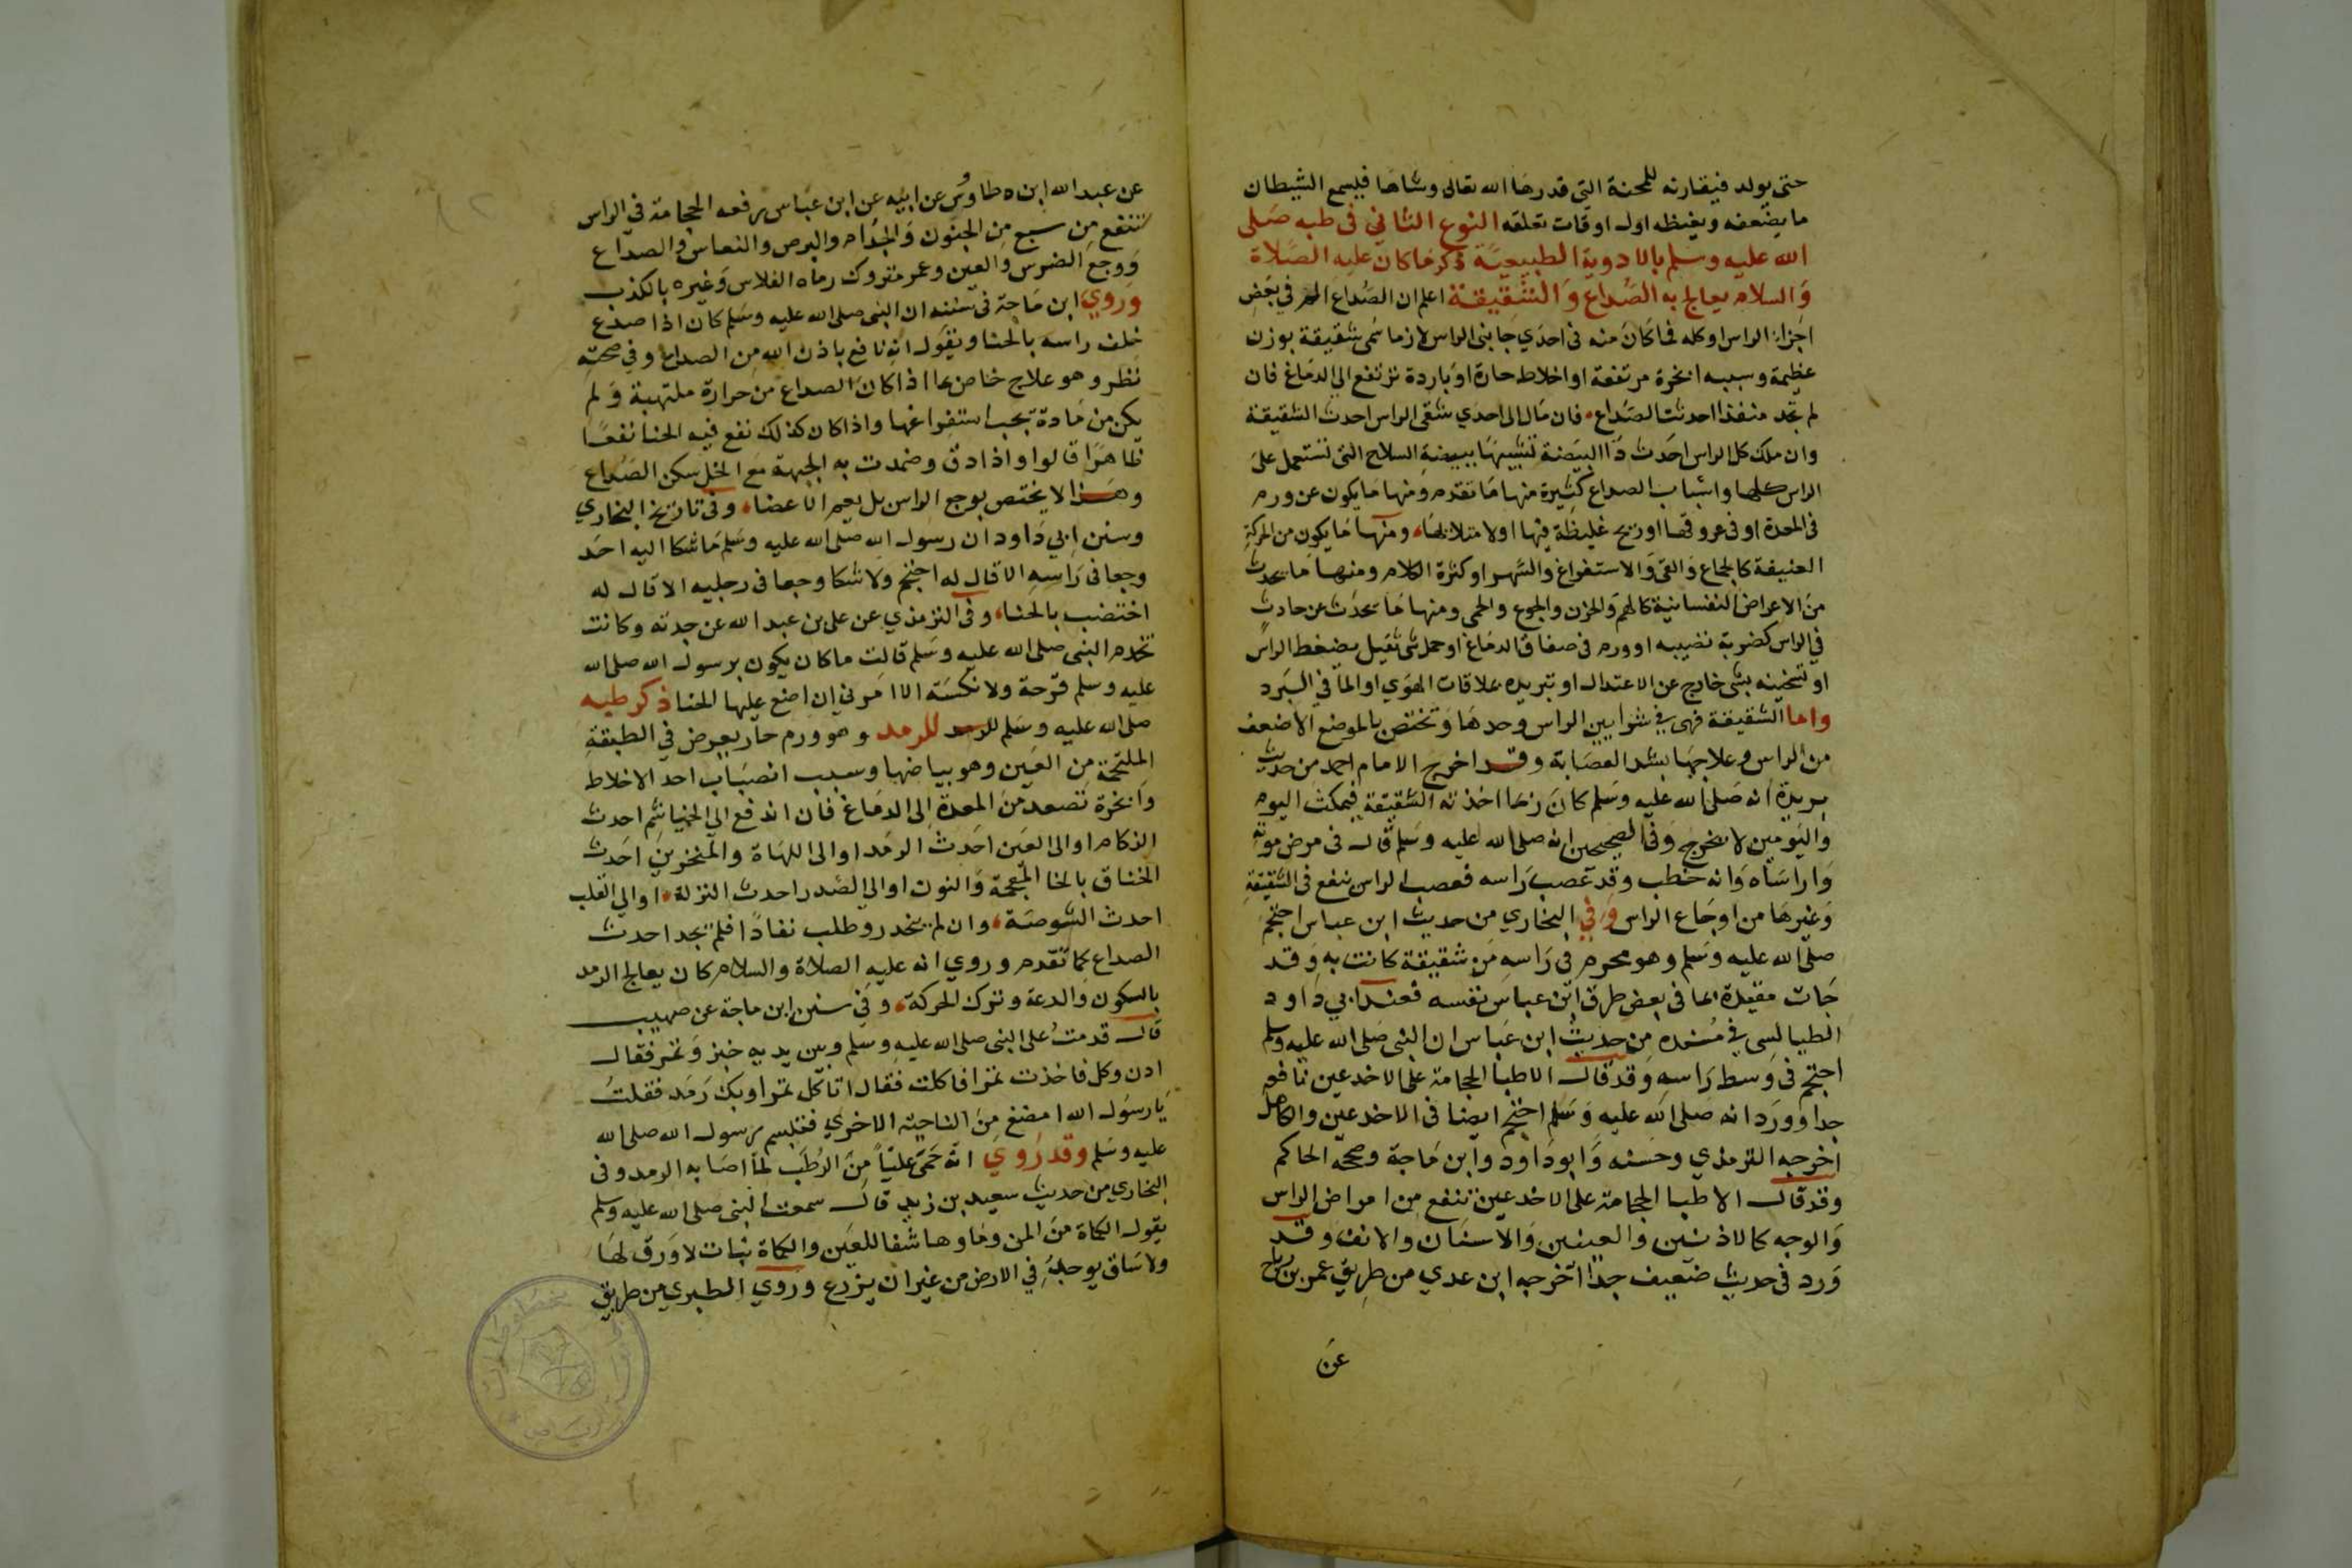 حتى يولد فيقارنه للمحنة التي قدرها الله تعالى وشاها فيسمع الشيطان
ما يضعفه ويغيظه اول اوقات تعلقه النوع الثاني في طبه صلى
الله عليه وسلم بالادوية الطبيعية ذكر ما كان عليه الصلاة
والسلام يعالج به الصداع والشقيقة اعلم ان الصداع الم في بعض
اجزاء الراس او كله فما كان منه في احدي جانبى الراس لازما سمى شقيقة بوزن
عظيمة وسببه ابخرة مرتفعة او اخلاط حارة او باردة ترتفع الي الدماغ فان
لم تجد منفذا احدثت الصداع فان مال الى احدي شقى الراس احدث الشقيقة
وان ملك كل الراس احدث داا البيضة تشبيها ببيضة السلاح التى تشتمل على
الراس كلها واسباب الصداع كثيرة منها ما تقدم ومنها ما يكون عن ورم
في المعدة او في عروقها او ريح غليظة فيها او لامتلائها ومنها ما يكون من الحركة
العنيفة كالجماع والقي والاستفراغ والسهر او كثرة الكلام ومنها ما يحدث
من الاعراض النفسانية كالهم والحزن والجوع والحمى ومنها ما يحدث عن حادث
في الراس كضربة تصيبه او ورم في صفاق الدماغ او حمل شى ثقيل يضغط الراس
او تسخينه بشى خارج عن الاعتدال او تبريده بملاقات الهوي او الما في البرد
واما الشقيقة فهى في شرايين الراس وحدها وتختص بالموضع الاضعف
من الراس وعلاجها بشد العصابة وقد اخرج الامام احمد من حديث
بريدة انه صلى الله عليه وسلم كان ربما اخذته الشقيقة فيمكث اليوم
واليومين لا يخرج وفي الصحيحين انه صلى الله عليه وسلم قال في مرض موته
واراساه وانه خطب وقد عصب راسه فعصب الراس ينفع في الشقيقة
وغيرها من اوجاع الراس وفي البخاري من حديث ابن عباس احتجم
صلى الله عليه وسلم وهو محرم في راسه من شقيقة كانت به وقد
جات مقيدة بما في بعض طرق ابن عباس نفسه فعند ابي داود
الطيالسى في مسنده من حديث ابن عباس ان النبى صلى الله عليه وسلم
احتجم في وسط راسه وقد قال الاطبا الحجامة على الاخدعين نافعة
جدا وورد انه صلى الله عليه وسلم احتجم ايضا في الاخدعين والكاهل
اخرجه الترمذي وحسنه وابو داود وابن ماجة وصححه الحاكم
وقد قال الاطبا الحجامة على الاخدعين تنفع من امراض الراس
والوجه كالاذنين والعينين والاسنان والانف وقد
ورد في حديث ضعيف جدا اخرجه ابن عدي من طريق عمر بن رباح
عن
عن عبد الله ابن طاووس عن ابيه عن ابن عباس رفعه الحجامة في الراس
تنفع من سبع من الجنون والجذام والبرص والنعاس والصداع
ووجع الضرس والعين وعمر متروك رماه الفلاس وغيره بالكذب
وروي ابن ماجة في سننه ان النبى صلى الله عليه وسلم كان اذا صدع
غلف راسه بالحنا ويقول انه نافع باذن الله من الصداع وفي صحته
نظر وهو علاج خاص بما اذا كان الصداع من حرارة ملتهبة ولم
يكن من مادة يجب استفراغها واذا كان كذلك نفع فيه الحنا نفعا
ظاهرا قالوا واذا دق وضمدت به الجبهة مع الخل سكن الصداع
وهذا لا يختص بوجع الراس بل يعم الاعضا وفي تاريخ البخاري
وسنن ابي داود ان رسول الله صلى الله عليه وسلم ما شكا اليه احد
وجعا في راسه الا قال له احتجم ولا شكا وجعا في رجليه الا قال له
اختضب بالحنا وفي الترمذي عن على بن عبد الله عن جدته وكانت
تخدم النبى صلى الله عليه وسلم قالت ما كان يكون برسول الله صلى الله
عليه وسلم قرحة ولا نكسة الا امرني ان اضع عليها الحنا ذكر طبه
صلى الله عليه وسلم للرمد وهو ورم حار يعرض في الطبقة
الملتحمة من العين وهو بياضها وسببه انصباب احد الاخلاط
وابخرة تصعد من المعدة الى الدماغ فان اندفع الي الخياشم احدث
الزكام او الى العين احدث الرمد او الى اللهاة والمنخرين احدث
الخناق بالخا المعجمة والنون او الي الصدر احدث النزلة او الي القلب
احدث الشوصة وان لم ينحدر وطلب نفاذا فلم يجد احدث
الصداع كما تقدم وروي انه عليه الصلاة والسلام كان يعالج الرمد
بالسكون والدعة وترك الحركة وفي سنن ابن ماجة عن صهيب
قال قدمت على النبى صلى الله عليه وسلم وبين يديه خبز وتمر فقال
ادن وكل فاخذت تمرا فاكلت فقال اتاكل تمرا وبك رمد فقلت
يا رسول الله امضغ من الناحية الاخري فتبسم رسول الله صلى الله
عليه وسلم وقد روي انه حمى عليا من الرطب لما اصابه الرمد وفي
البخاري من حديث سعيد بن زيد قال سمعت النبى صلى الله عليه وسلم
يقول الكماة من المن وماوها شفا للعين والكماة نبات لا ورق لها
ولا ساق يوجد في الارض من غير ان يزرع وروي الطبري من طريق